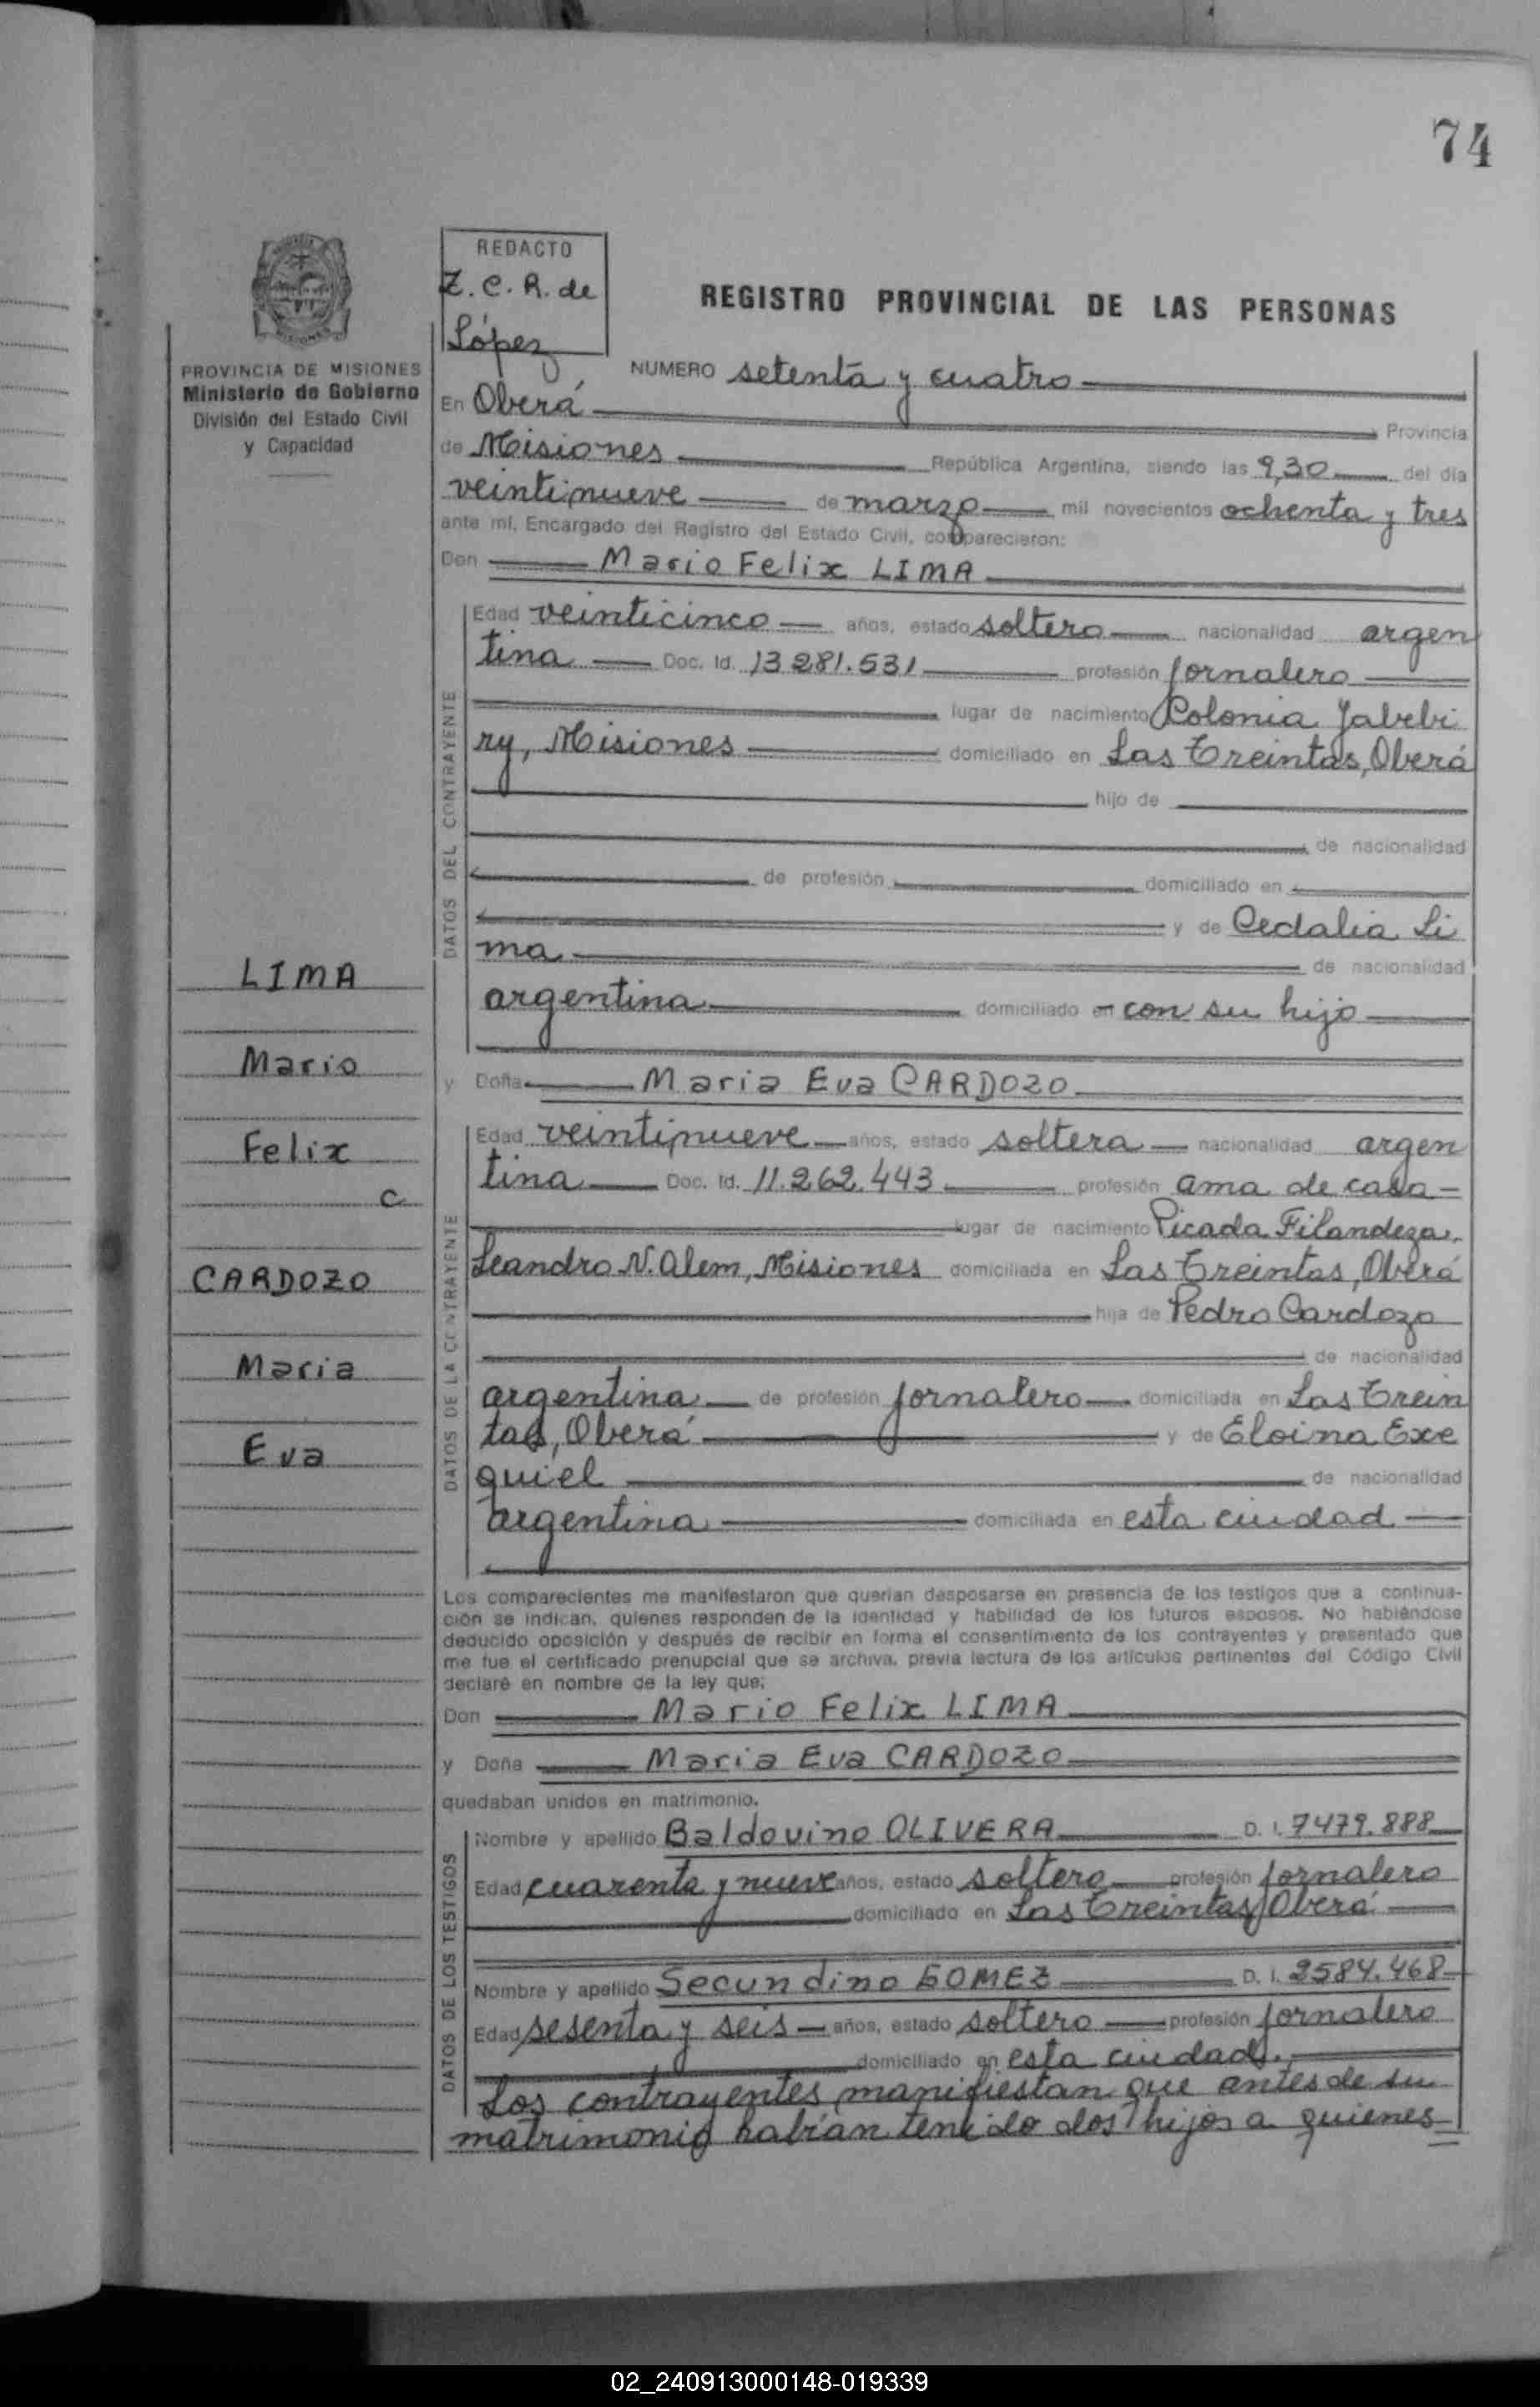 74
REDACTO
Z. C. R. de
López
REGISTRO PROVINCIAL DE LAS PERSONAS
PROVINCIA DE MISIONES
Ministerio de Gobierno
División del Estado Civil
y Capacidad
NUMERO setenta y cuatro
En Oberá Provincia
de Misiones República Argentina, siendo las 9,30 del día
veintinueve de marzo mil novecientos ochenta y tres
ante mí, Encargado del Registro del Estado Civil, comparecieron:
Don Mario Felix LIMA
DATOS DEL CONTRAYENTE
Edad veinticinco años, estado soltero nacionalidad argen
tina Doc. Id. 13281.531 profesión jornalero
lugar de nacimiento Colonia Yabebi
ry, Misiones domiciliado en Las Treintas, Oberá
hijo de
de nacionalidad
de profesión domiciliado en
y de Cedalia Li
ma de nacionalidad
argentina domiciliado en con su hijo
LIMA
Mario
Felix
c
CARDOZO
Maria
Eva
y Doña Maria Eva CARDOZO
DATOS DE LA CONTRAYENTE
Edad veintinueve años, estado soltera nacionalidad argen
tina Doc. Id. 11.262.443 profesión ama de casa
lugar de nacimiento Picada Filandeza,
Leandro N. Alem, Misiones domiciliada en Las Treintas, Oberá
hija de Pedro Cardozo
de nacionalidad
argentina de profesión jornalero domiciliada en Las Trein
tas, Oberá y de Eloina Exe
quiel de nacionalidad
argentina domiciliada en esta ciudad
Los comparecientes me manifestaron que querían desposarse en presencia de los testigos que a continua-
ción se indican, quienes responden de la identidad y habilidad de los futuros esposos. No habiéndose
deducido oposición y después de recibir en forma el consentimiento de los contrayentes y presentado que
me fue el certificado prenupcial que se archiva, previa lectura de los artículos pertinentes del Código Civil
declaré en nombre de la ley que:
Don Mario Felix LIMA
y Doña Maria Eva CARDOZO
quedaban unidos en matrimonio.
DATOS DE LOS TESTIGOS
Nombre y apellido Baldovino OLIVERA D. I. 7479.888
Edad cuarenta y nueve años, estado soltero profesión jornalero
domiciliado en Las Treintas, Oberá
Nombre y apellido Secundino GOMEZ D. I. 2584.468
Edad sesenta y seis años, estado soltero profesión jornalero
domiciliado en esta ciudad.
Los contrayentes manifiestan que antes de su
matrimonio habían tenido dos hijos a quienes
02_240913000148-019339